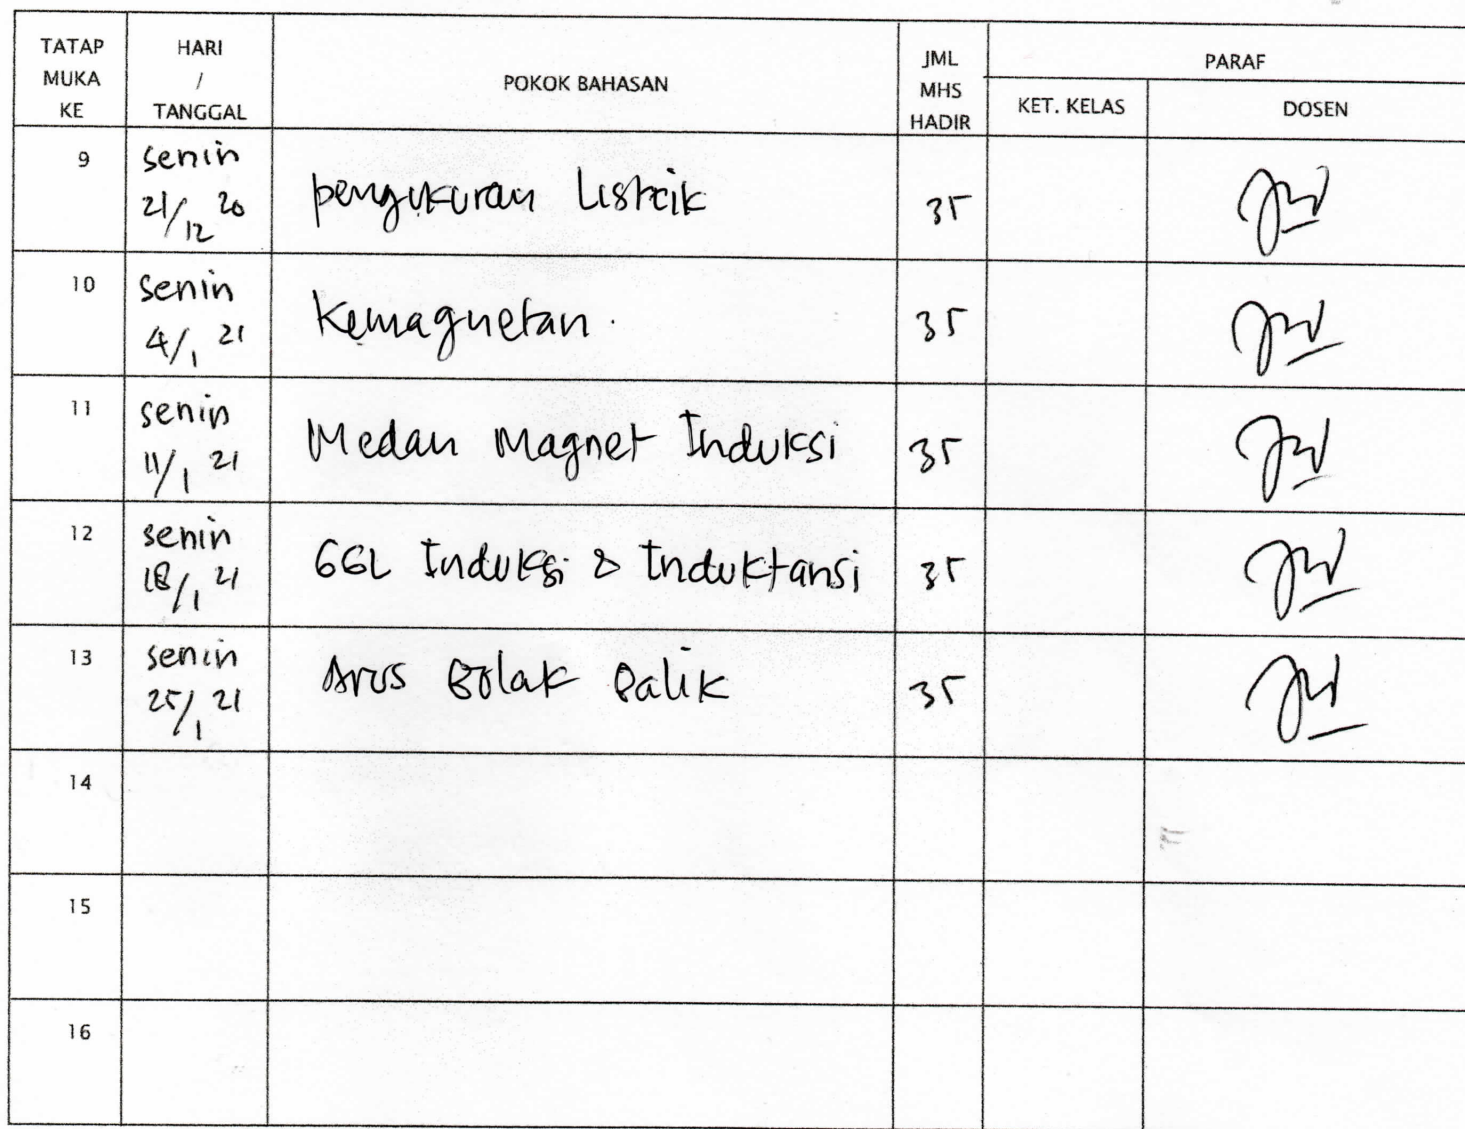 TATAP MUKA KE
HARI / TANGGAL
POKOK BAHASAN
JML MHS HADIR
PARAF
KET. KELAS
DOSEN
9
senin
21/12 20
pengukuran Listrik
35
10
senin
4/1 21
Kemagnetan.
35
11
senin
11/1 21
Medan Magnet Induksi
35
12
senin
18/1 21
GGL Induksi & Induktansi
35
13
senin
25/1 21
Arus Bolak Balik
35
14
15
16